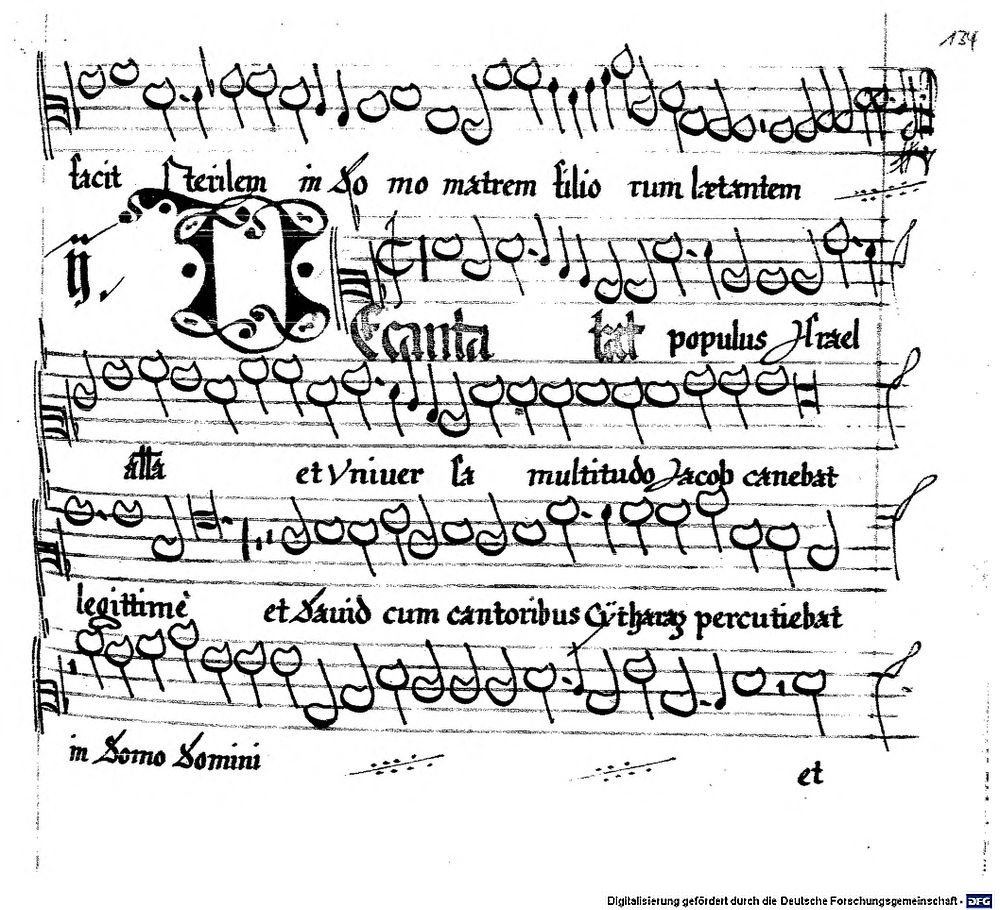 134
facit Sterilem in Do mo matrem filio rum lætantem
ij. D Ecanta bat populus Israel
alla et Vniuer sa multitudo Jacob canebat
legittimè et Dauid cum cantoribus Cÿtharaz percutiebat
in Domo Domini et
Digitalisierung gefördert durch die Deutsche Forschungsgemeinschaft - DFG